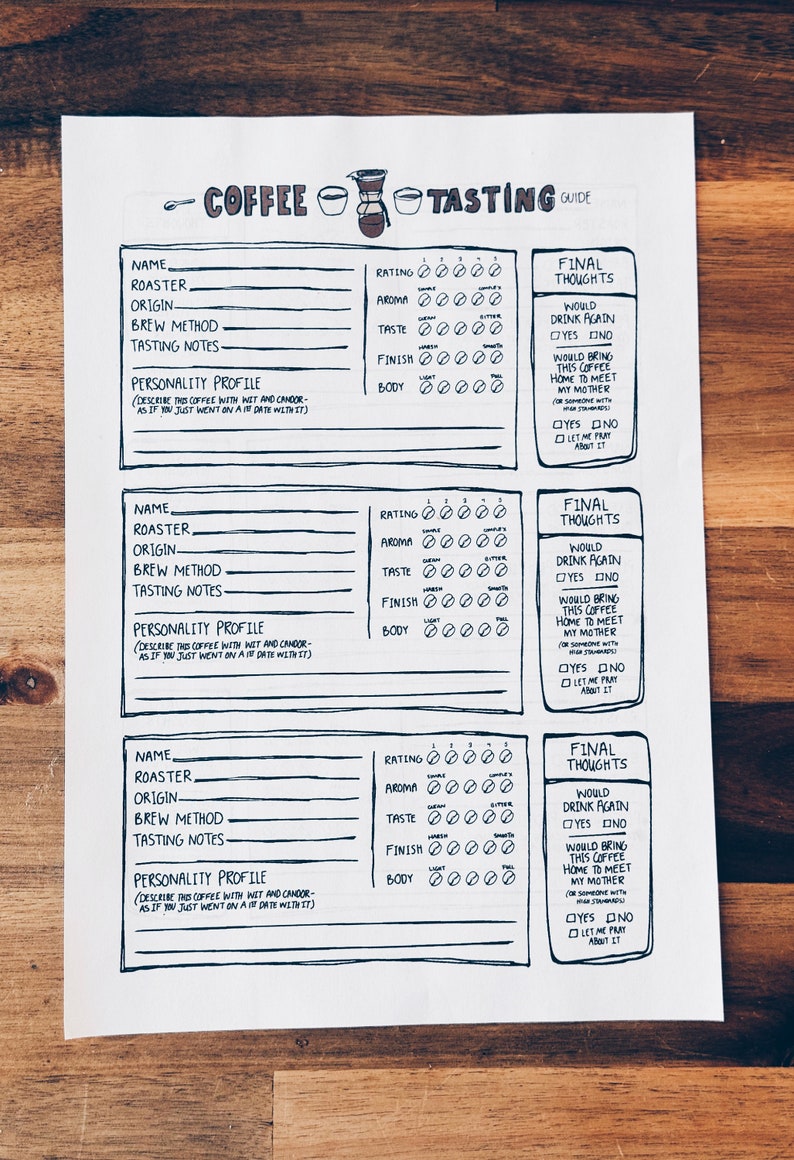 COFFEE TASTING GUIDE
NAME
ROASTER
ORIGIN
BREW METHOD
TASTING NOTES
PERSONALITY PROFILE
(DESCRIBE THIS COFFEE WITH WIT AND CANDOR-
AS IF YOU JUST WENT ON A 1ST DATE WITH IT)
1 2 3 4 5
RATING
SIMPLE COMPLEX
AROMA
CLEAN BITTER
TASTE
HARSH SMOOTH
FINISH
LIGHT FULL
BODY
FINAL
THOUGHTS
WOULD
DRINK AGAIN
YES NO
WOULD BRING
THIS COFFEE
HOME TO MEET
MY MOTHER
(OR SOMEONE WITH
HIGH STANDARDS)
YES NO
LET ME PRAY
ABOUT IT
NAME
ROASTER
ORIGIN
BREW METHOD
TASTING NOTES
PERSONALITY PROFILE
(DESCRIBE THIS COFFEE WITH WIT AND CANDOR-
AS IF YOU JUST WENT ON A 1ST DATE WITH IT)
1 2 3 4 5
RATING
SIMPLE COMPLEX
AROMA
CLEAN BITTER
TASTE
HARSH SMOOTH
FINISH
LIGHT FULL
BODY
FINAL
THOUGHTS
WOULD
DRINK AGAIN
YES NO
WOULD BRING
THIS COFFEE
HOME TO MEET
MY MOTHER
(OR SOMEONE WITH
HIGH STANDARDS)
YES NO
LET ME PRAY
ABOUT IT
NAME
ROASTER
ORIGIN
BREW METHOD
TASTING NOTES
PERSONALITY PROFILE
(DESCRIBE THIS COFFEE WITH WIT AND CANDOR-
AS IF YOU JUST WENT ON A 1ST DATE WITH IT)
1 2 3 4 5
RATING
SIMPLE COMPLEX
AROMA
CLEAN BITTER
TASTE
HARSH SMOOTH
FINISH
LIGHT FULL
BODY
FINAL
THOUGHTS
WOULD
DRINK AGAIN
YES NO
WOULD BRING
THIS COFFEE
HOME TO MEET
MY MOTHER
(OR SOMEONE WITH
HIGH STANDARDS)
YES NO
LET ME PRAY
ABOUT IT